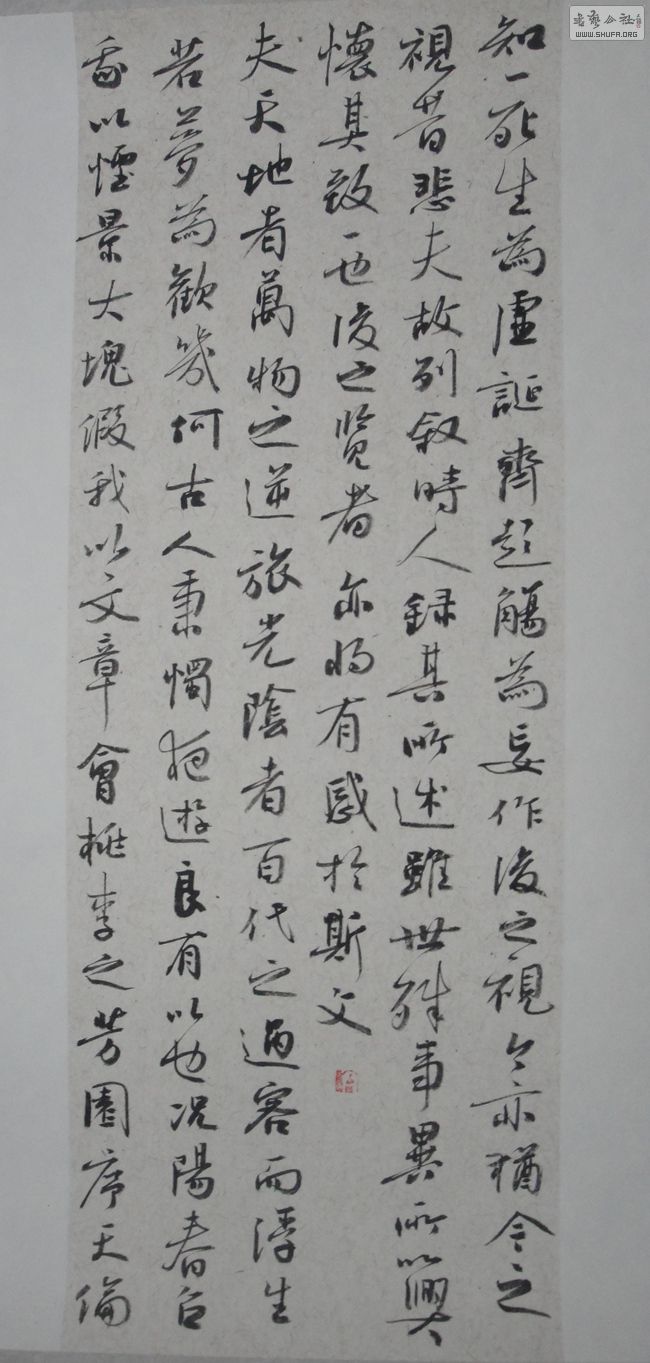 知一死生為虛誕齊彭觴為妄作後之視今亦猶今之
視昔悲夫故列叙時人録其所述雖世殊事異所以興
懷其致一也後之覽者亦將有感於斯文
夫天地者萬物之逆旅光陰者百代之過客而浮生
若夢為歡幾何古人秉燭夜遊良有以也況陽春召
我以煙景大塊假我以文章會桃李之芳園序天倫
書藝公社
WWW.SHUFA.ORG